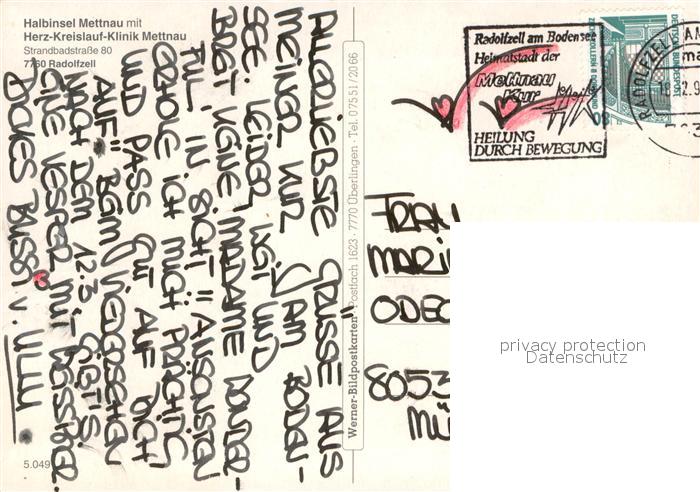 Halbinsel Mettnau mit
Herz-Kreislauf-Klinik Mettnau
Strandbadstraße 80
7760 Radolfzell
ALLERLIEBSTE GRÜSSE AUS
MEINER KUR AM BODEN-
SEE. LEIDER, UND
BREIT KEINE MADAME
IN SICHT!! ANSONSTEN
ERHOLE ICH MICH PRÄCHTIG
UND PASS GUT AUF DICH
AUF!! BEIM WIEDERSEHEN
NACH DEM 12.3. GIBT'S
EINE VESPER MIT
DICKES BUSSI v. ULLI
5.049
Werner-Bildpostkarten · Postfach 1623 · 7770 Überlingen · Tel. 07551/2066
Radolfzell am Bodensee
Heimatstadt der
Mettnau
Kur
HEILUNG
DURCH BEWEGUNG
DEUTSCHE BUNDESPOST
80
RADOLFZELL AM
FRAU
MARI
ODEO
8053
MÜ
privacy protection
Datenschutz